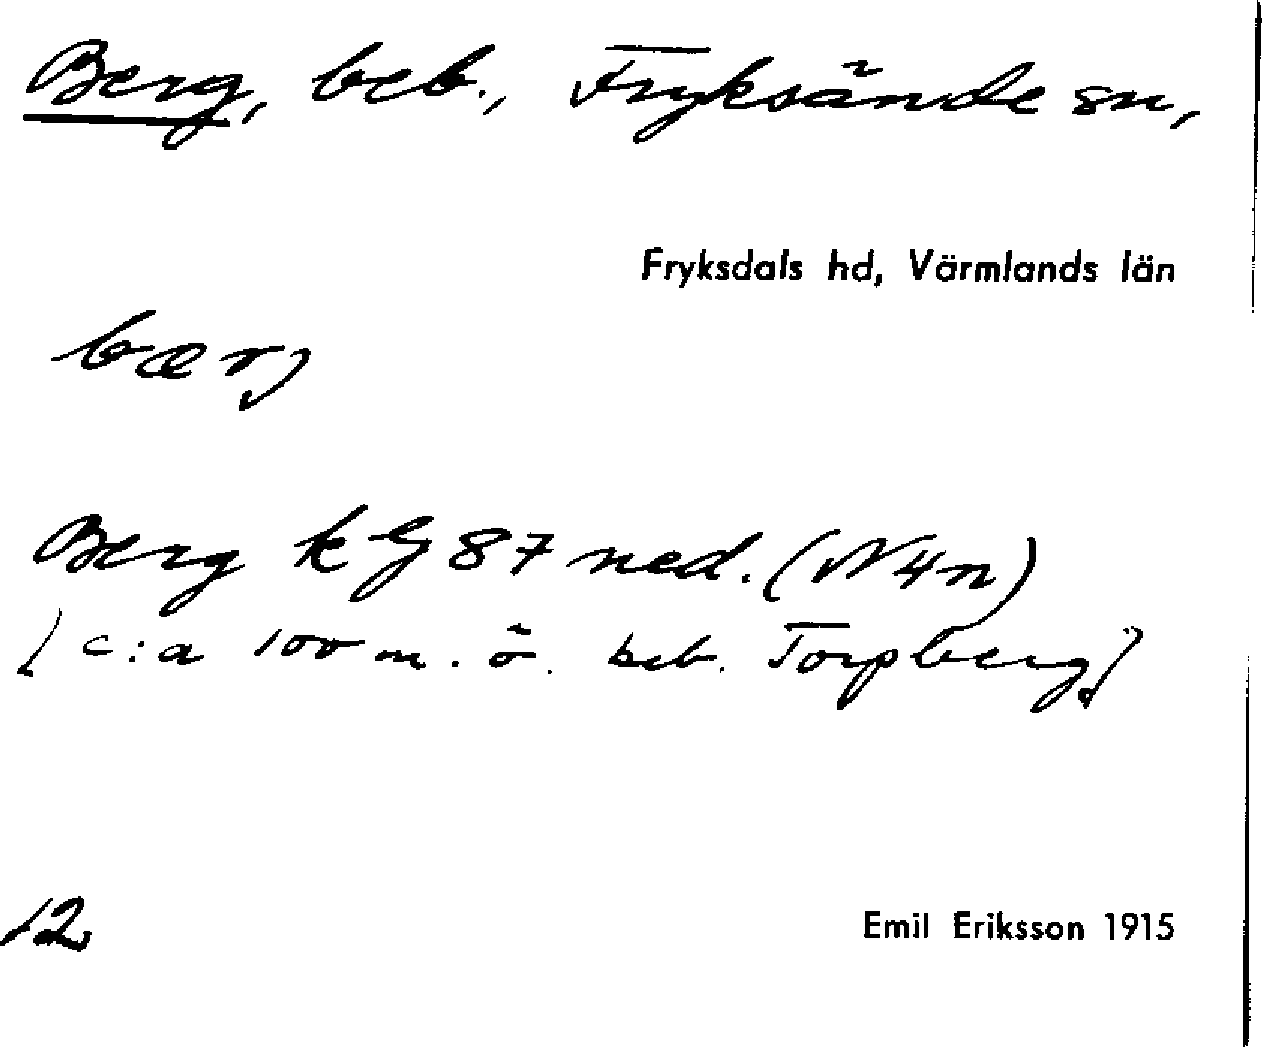 Berg, beb., Fryksände sn,
Fryksdals hd, Värmlands län
bærj
Berg k G 87 ned. (N4n)
[c:a 100 m. ö. beb. Torpberg]
12
Emil Eriksson 1915